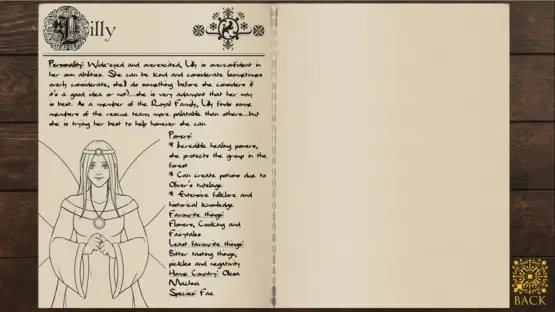 Lilly
Personality: Wide-eyed and overexcited, Lilly is overconfident in
her own abilities. She can be kind and considerate (sometimes
overly considerate, she'll do something before she considers if
it's a good idea or not)...she is very adamant that her way
is best. As a member of the Royal Family, Lilly finds some
members of the rescue team, more palatable than others...but
she is trying her best to help however she can
Powers:
* Incredible healing powers,
she protects the group in the
forest
* Can create potions due to
Oliver's tutelage
* Extensive folklore and
historical knowledge
Favourite things:
Flowers, Cooking and
Fairytales
Least favourite things:
Bitter tasting things,
pickles and negativity
Home Country:
Species: Fae
BACK